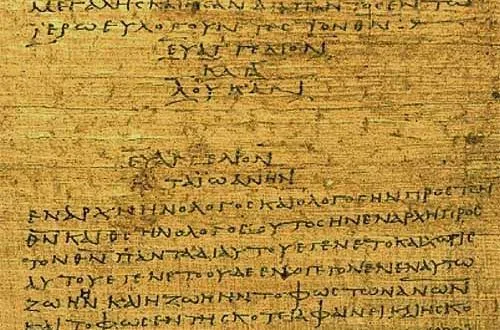 ΜΕΓΑΛΗϹ ΚΑΙ ΗϹΑΝ ΔΙΑ ΠΑΝΤΟϹ ΕΝ ΤΩ
ΙΕΡΩ ΕΥΛΟΓΟΥΝΤΕϹ ΤΟΝ ΘΝ
ΕΥΑΓΓΕΛΙΟΝ
ΚΑΤΑ
ΛΟΥΚΑΝ
ΕΥΑΓΓΕΛΙΟΝ
ΚΑΤΑ ΙΩΑΝΗΝ
ΕΝ ΑΡΧΗ ΗΝ Ο ΛΟΓΟϹ ΚΑΙ Ο ΛΟΓΟϹ ΗΝ ΠΡΟϹ ΤΟΝ
ΘΝ ΚΑΙ ΘϹ ΗΝ Ο ΛΟΓΟϹ ΟΥΤΟϹ ΗΝ ΕΝ ΑΡΧΗ ΠΡΟϹ
ΤΟΝ ΘΝ ΠΑΝΤΑ ΔΙ ΑΥΤΟΥ ΕΓΕΝΕΤΟ ΚΑΙ ΧΩΡΙϹ
ΑΥΤΟΥ ΕΓΕΝΕΤΟ ΟΥΔΕ ΕΝ Ο ΓΕΓΟΝΕΝ ΕΝ ΑΥΤΩ
ΖΩΗ ΗΝ ΚΑΙ Η ΖΩΗ ΗΝ ΤΟ ΦΩϹ ΤΩΝ ΑΝΩΝ
ΚΑΙ ΤΟ ΦΩϹ ΕΝ ΤΗ ϹΚΟΤΕΙΑ ΦΑΙΝΕΙ ΚΑΙ Η ϹΚΟ